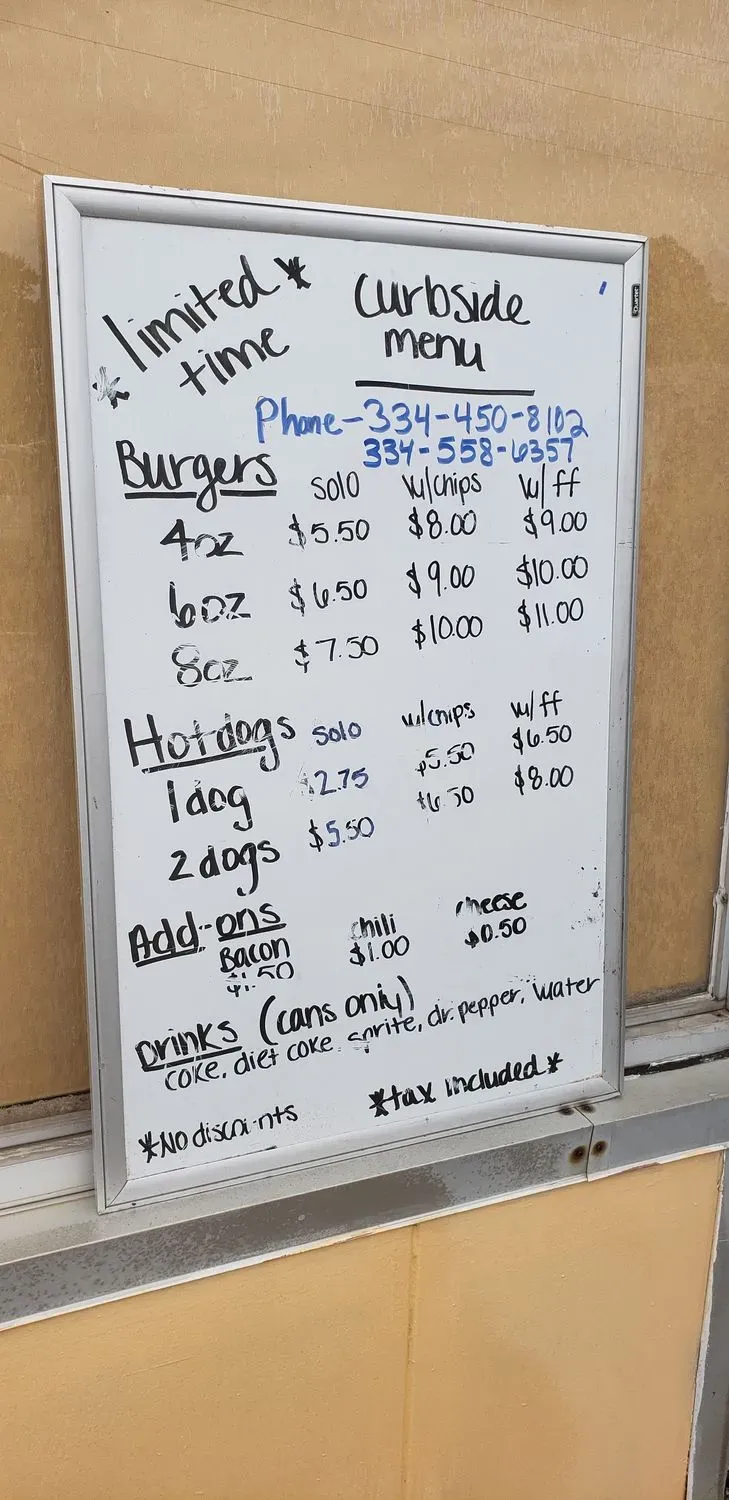 *limited*
time
Curbside
menu
Phone-334-450-8102
334-558-6357
Burgers solo w/chips w/ff
4oz $5.50 $8.00 $9.00
6oz $6.50 $9.00 $10.00
8oz $7.50 $10.00 $11.00
Hotdogs solo w/chips w/ff
1dog $2.75 $5.50 $6.50
2 dogs $5.50 $6.50 $8.00
Add-ons
Bacon chili cheese
$1.50 $1.00 $0.50
Drinks (cans only)
coke, diet coke, sprite, dr. pepper, water
*tax included*
*No discounts
Quartet